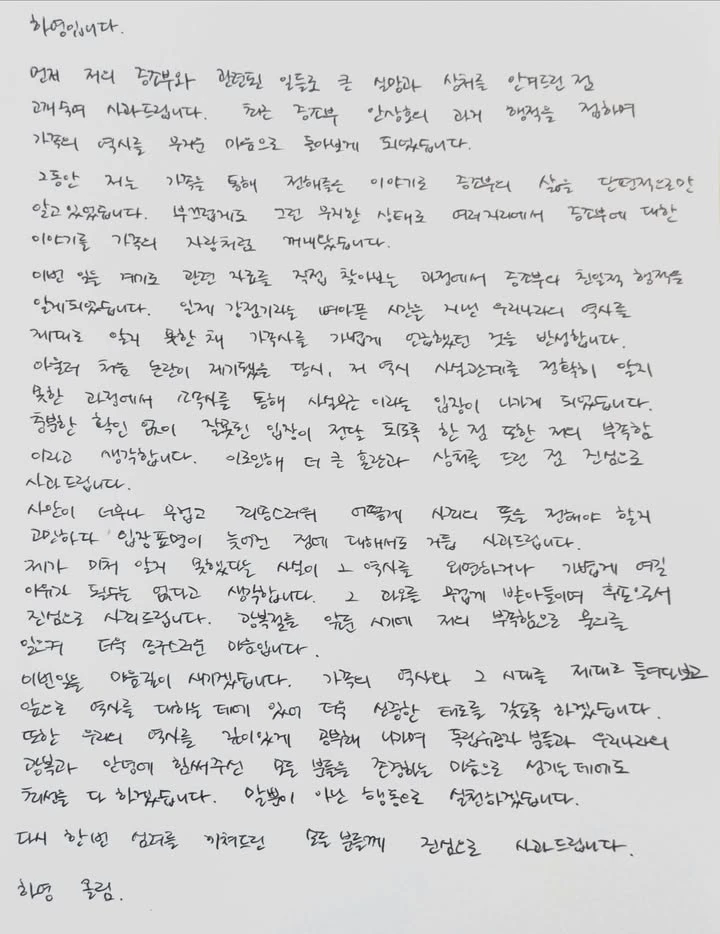 하영입니다.
먼저 저의 증조부와 관련된 일들로 큰 실망과 상처를 안겨드린 점
고개숙여 사과드립니다. 최근 증조부 안상호의 과거 행적을 접하며
가족의 역사를 무거운 마음으로 돌아보게 되었습니다.
그동안 저는 가족을 통해 전해들은 이야기로 증조부의 삶을 단편적으로만
알고 있었습니다. 부끄럽게도 그런 무지한 상태로 여러자리에서 증조부에 대한
이야기를 가족의 자랑처럼 꺼내왔습니다.
이번 일을 계기로 관련 자료를 직접 찾아보는 과정에서 증조부의 친일적 행적을
알게되었습니다. 일제 강점기라는 뼈아픈 시간을 지낸 우리나라의 역사를
제대로 알지 못한채 가족사를 가볍게 언급했던 것을 반성합니다.
아울러 처음 논란이 제기됐을 당시, 저 역시 사실관계를 정확히 알지
못한 과정에서 소속사를 통해 사실무근이라는 입장이 나가게 되었습니다.
충분한 확인 없이 잘못된 입장이 전달 되도록 한 점 또한 저의 부족함
이라고 생각합니다. 이로인해 더 큰 혼란과 상처를 드린 점 진심으로
사과드립니다.
사안이 너무나 무겁고 죄송스러워 어떻게 사죄의 뜻을 전해야 할지
고민하다 입장표명이 늦어진 점에 대해서도 거듭 사과드립니다.
제가 미처 알지 못했다는 사실이 그 역사를 외면하거나 가볍게 여길
이유가 될수는 없다고 생각합니다. 그 과오를 무겁게 받아들이며 후손으로서
진심으로 사죄드립니다. 광복절을 앞둔 시기에 저의 부족함으로 물의를
일으켜 더욱 송구스러운 마음입니다.
이번일을 마음깊이 새기겠습니다. 가족의 역사와 그 시대를 제대로 들여다보고
앞으로 역사를 대하는 데에 있어 더욱 신중한 태도를 갖도록 하겠습니다.
또한 우리의 역사를 깊이있게 공부해 나가며 독립유공자 분들과 우리나라의
광복과 안녕에 힘써주신 모든 분들을 존경하는 마음으로 섬기는 데에도
최선을 다 하겠습니다. 말뿐이 아닌 행동으로 실천하겠습니다.
다시 한번 심려를 끼쳐드린 모든 분들께 진심으로 사과드립니다.
하영 올림.